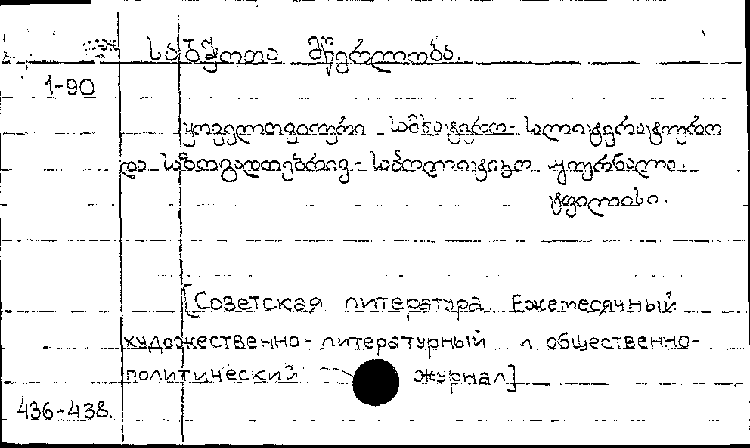 საბჭოთა მწერლობა.
1-90
ყოველთვიური სამხატვრო-სალიტერატურო
და საზოგადოებრივ-საპოლიტიკო ჟურნალი.
ტფილისი.
[Советская литература. Ежемесячный
художественно-литературный и общественно-
политический журнал]
436-438.